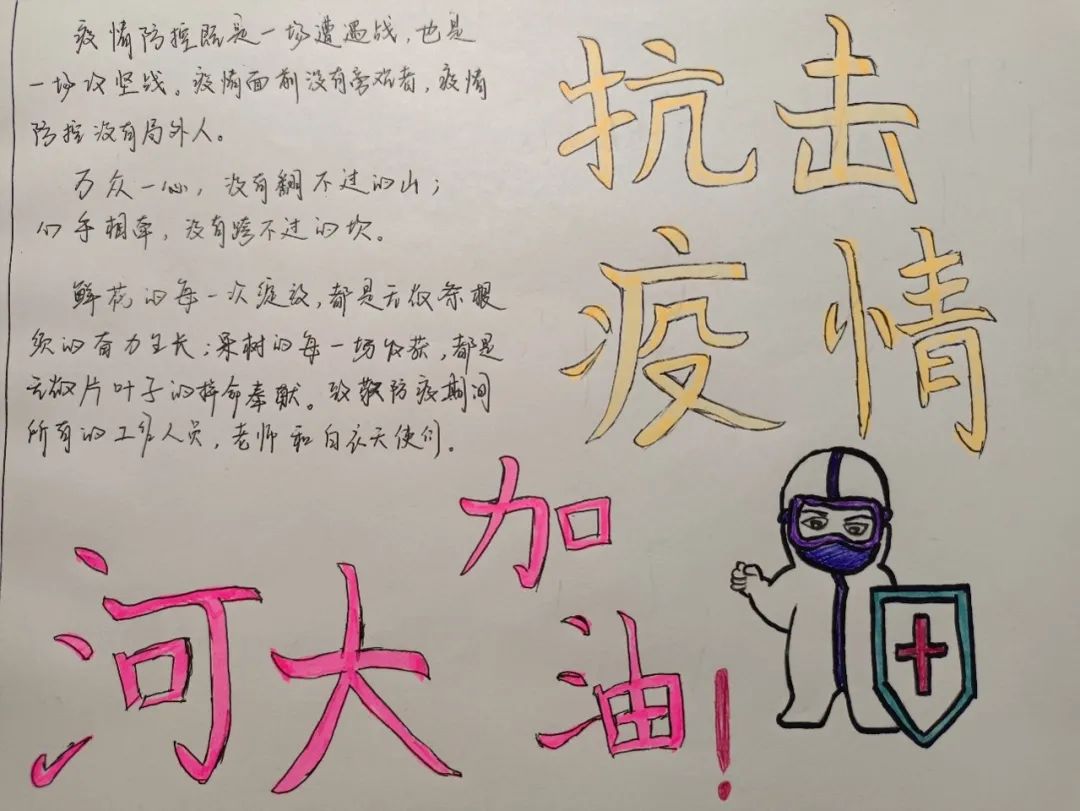 疫情防控既是一场遭遇战，也是
一场攻坚战。疫情面前没有旁观者，疫情
防控没有局外人。
万众一心，没有翻不过的山；
心手相牵，没有跨不过的坎。
鲜花的每一次绽放，都是无数条根
须的奋力生长；果树的每一场收获，都是
无数片叶子的拼命奉献。致敬防疫期间
所有的工作人员，老师和白衣天使们。
抗击
疫情
河大
加
油！